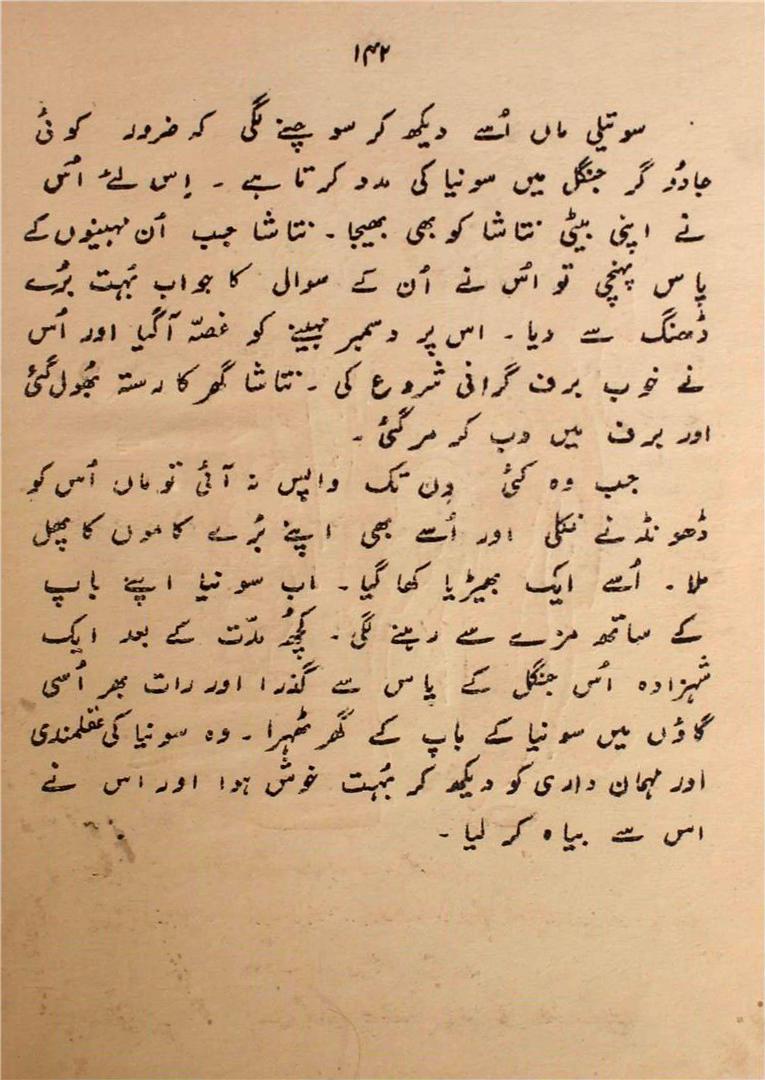 ۱۴۲
سوتیلی ماں اُسے دیکھ کر سوچنے لگی کہ ضرور کوئی
جادُو گر جنگل میں سونیا کی مدد کرتا ہے ۔ اِس لئے اُس
نے اپنی بیٹی نتاشا کو بھی بھیجا ۔ نتاشا جب اُن مہینوں کے
پاس پہنچی تو اُس نے اُن کے سوال کا جواب بُہت بُرے
ڈھنگ سے دیا ۔ اس پر دسمبر مہینے کو غصّہ آگیا اور اُس
نے خوب برف گرانی شروع کی ۔ نتاشا گھر کا رستہ بُھول گئی
اور برف میں دب کر مر گئی ۔
جب وہ کئی دِن تک واپس نہ آئی تو ماں اُس کو
ڈُھونڈنے نکلی اور اُسے بھی اپنے بُرے کاموں کا پھل
ملا ۔ اُسے ایک بھیڑیا کھا گیا ۔ اب سونیا اپنے باپ
کے ساتھ مزے سے رہنے لگی ۔ کچُھ مدّت کے بعد ایک
شہزادہ اُس جنگل کے پاس سے گذرا اور رات بھر اُسی
گاؤں میں سونیا کے باپ کے گھر ٹھہرا ۔ وہ سونیا کی عقلمندی
اور مہمان داری کو دیکھ کر بُہت خوش ہوا اور اس نے
اس سے بیاہ کر لیا ۔